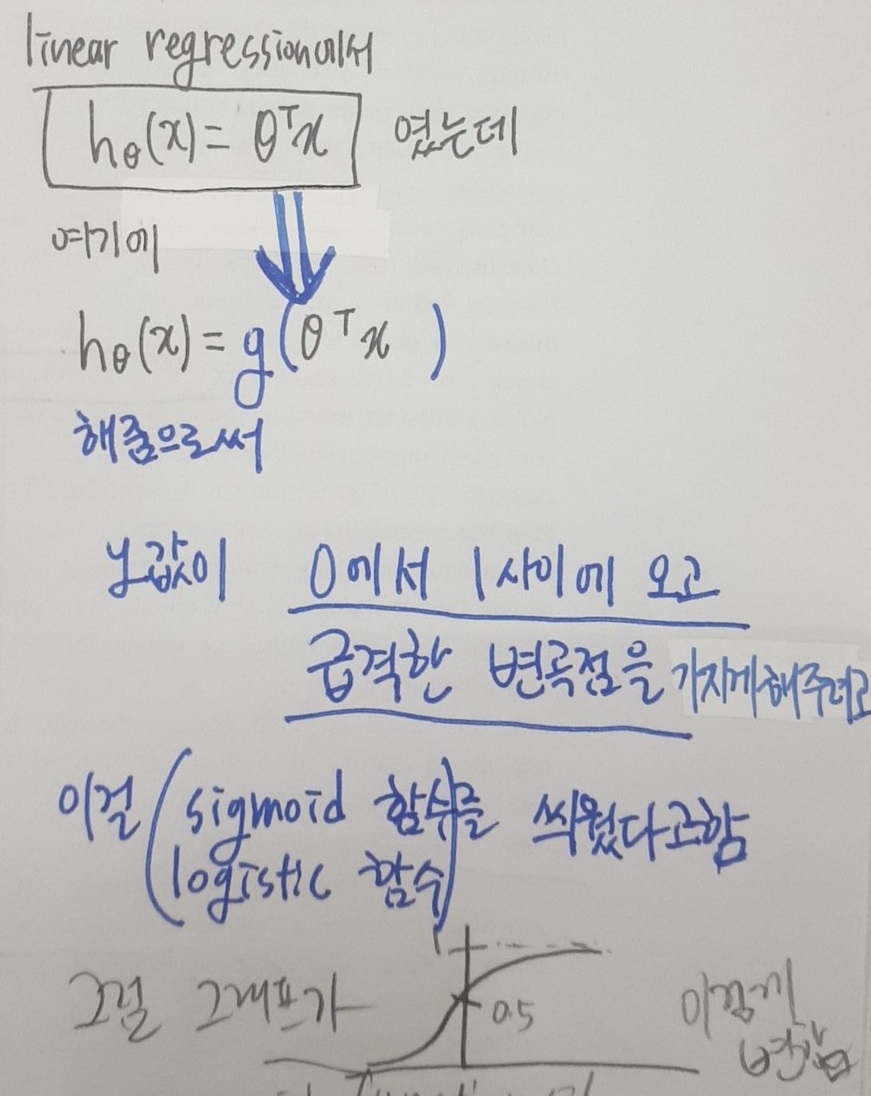 linear regression에서
hθ(x) = θᵀx 였는데
여기에
hθ(x) = g(θᵀx )
해줌으로써
y값이 0에서 1사이에 오고
급격한 변곡점을 가지게해주려고
이걸 (sigmoid 함수를 씌웠다고함
logistic 함수)
1
그럼 그래프가 0.5 이렇게
변함